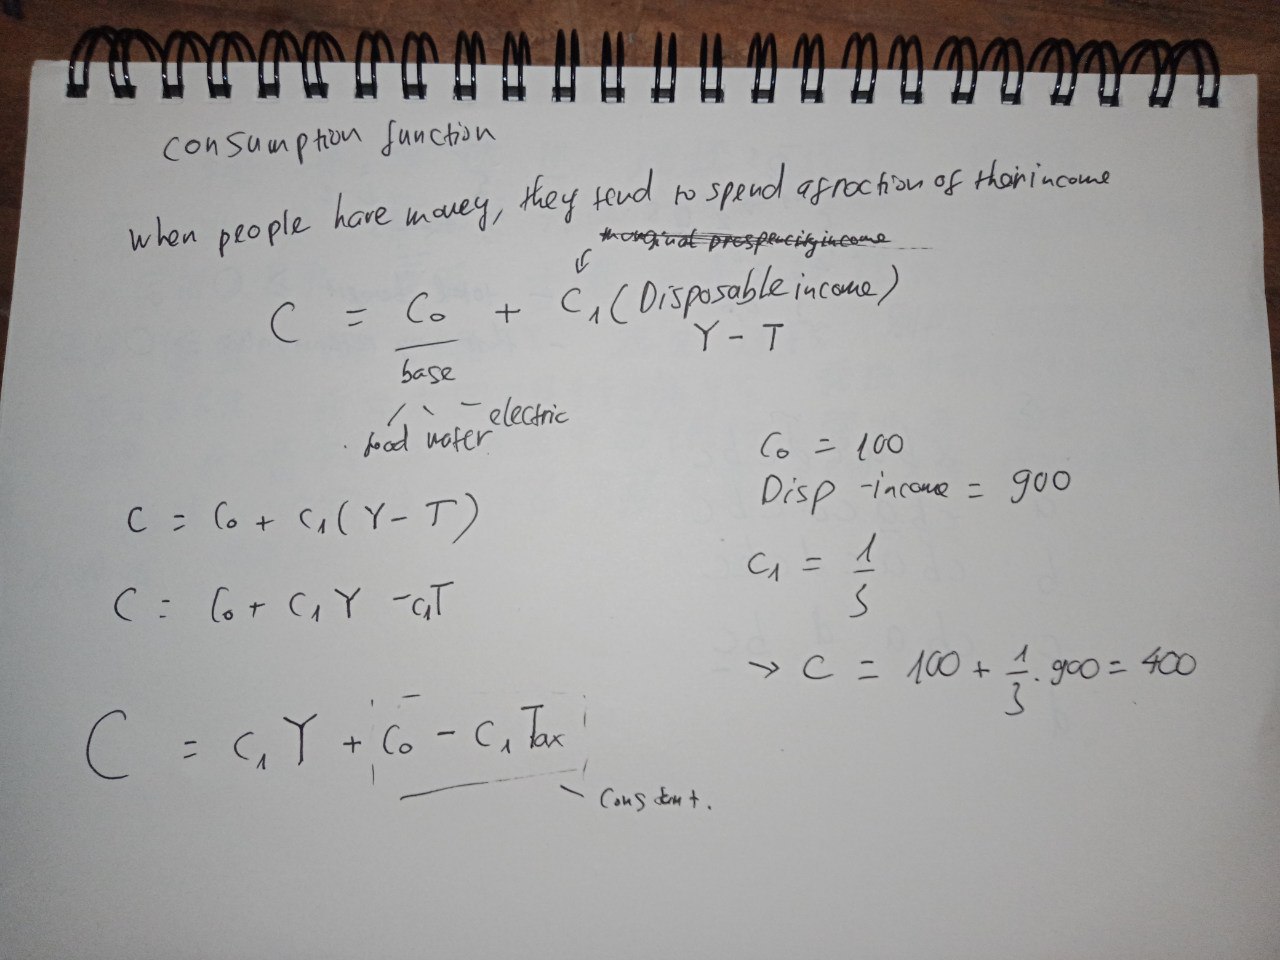 consumption function
when people have money, they tend to spend a fraction of their income
marginal prospencity income
C = C₀ + C₁ (Disposable income)
Y - T
base
food water electric
C = C₀ + C₁ (Y - T)
C = C₀ + C₁ Y - C₁T
C = C₁ Y + C₀ - C₁ Tax
constant.
C₀ = 100
Disp - income = 900
C₁ = 1/3
→ C = 100 + 1/3 . 900 = 400